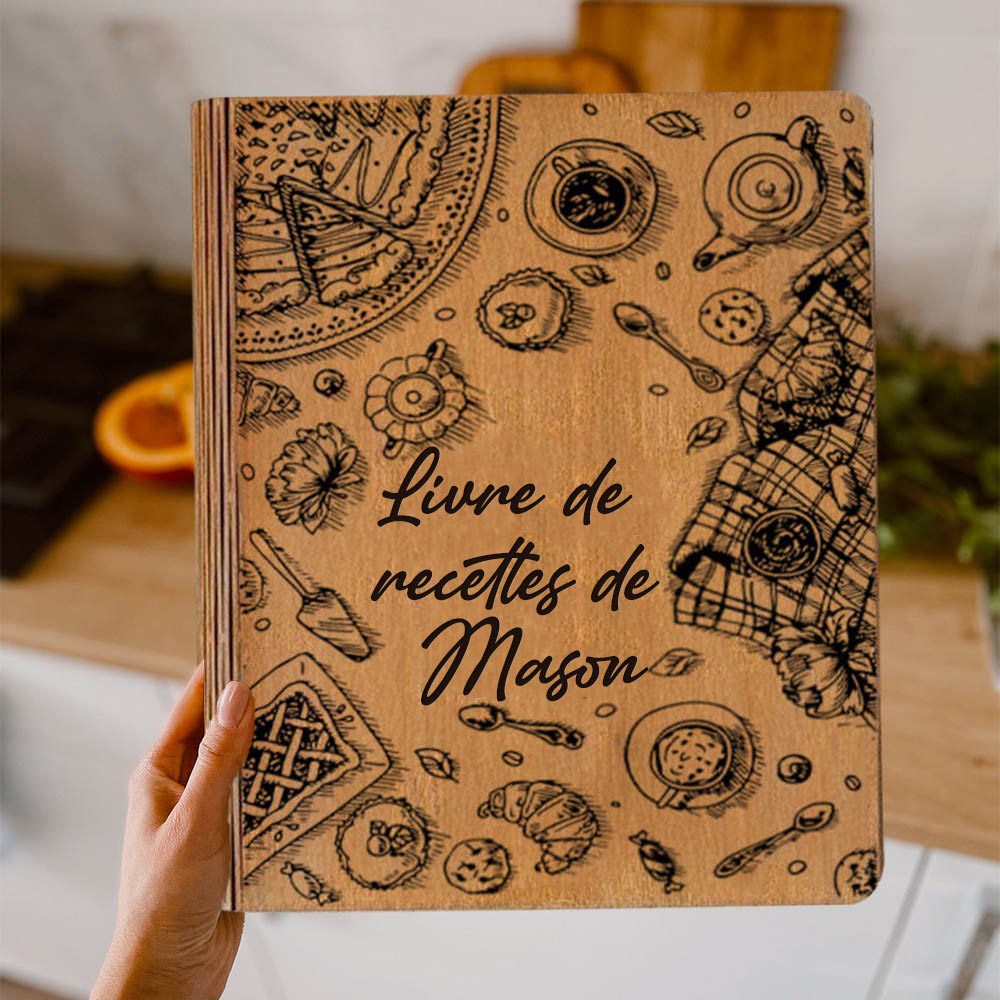 Livre de
recettes de
Mason